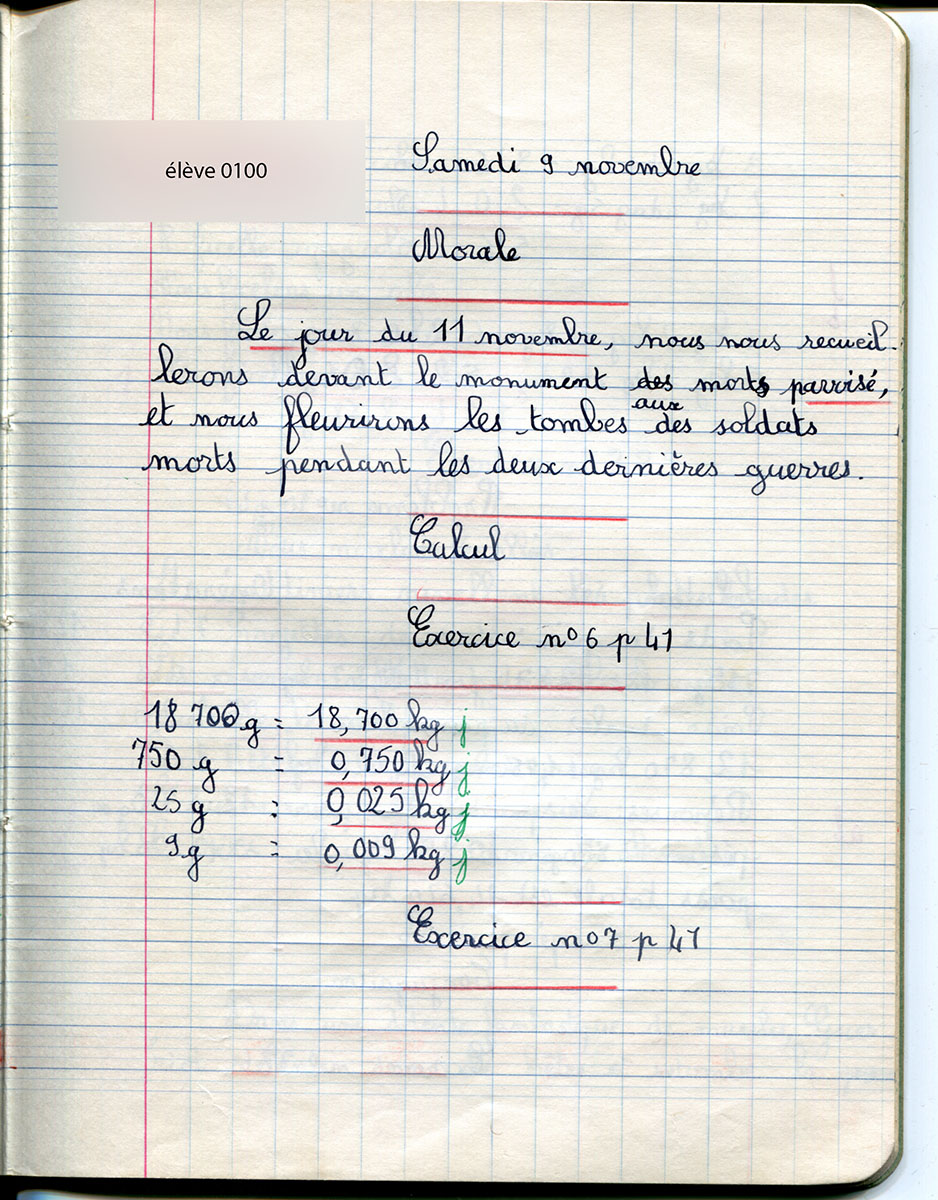 élève 0100
Samedi 9 novembre
Morale
Le jour du 11 novembre, nous nous recueil-
lerons devant le monument des morts pavoisé,
aux
et nous fleurirons les tombes des soldats
morts pendant les deux dernières guerres.
Calcul
Exercice n° 6 p 41
18 700 g = 18,700 kg j
750 g = 0,750 kg j
25 g = 0,025 kg j
9 g = 0,009 kg j
Exercice n° 7 p 41